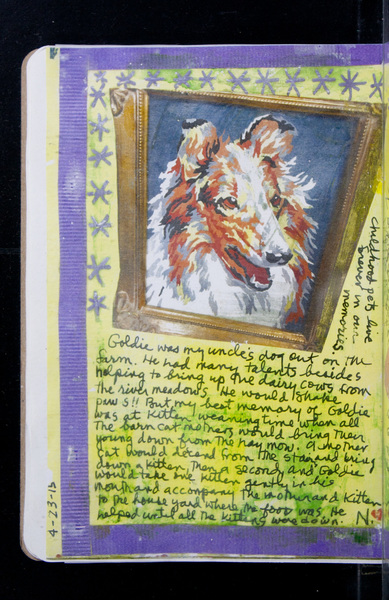 childhood pets live
forever in our
memories
Goldie was my uncle's dog out on the
farm. He had many talents besides
helping to bring up the dairy cows from
the river meadows. He would "shake
paws"!! But my best memory of Goldie
was at Kitten weaning time when all
The barn cat mothers would bring their
young down from the hay mow. A mother
cat would descend from the stair and bring
down a Kitten. Then a second, and Goldie
would take one kitten gently in his
mouth and accompany the mother and Kitten
to the house yard where the food was. He
helped until all the Kittens were down.
N.
4-23-15